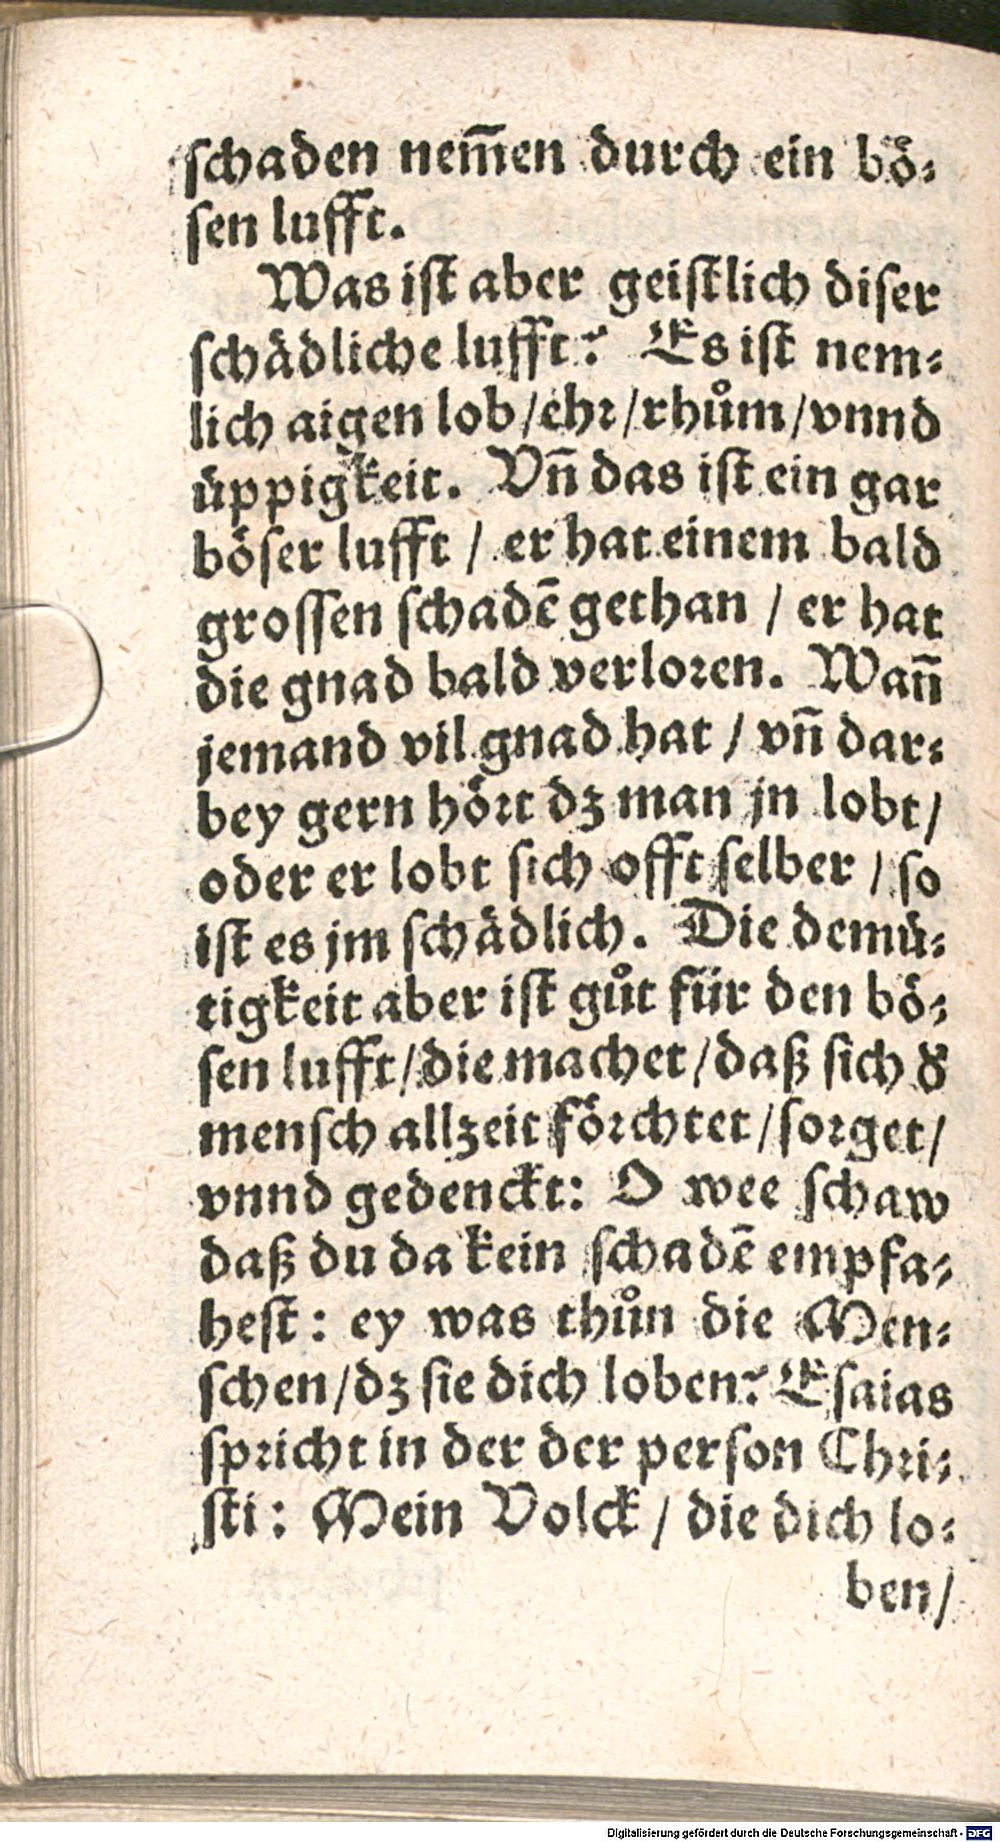 ſchaden nem̃en durch ein bö⸗
ſen lufft.
Was iſt aber geiſtlich diſer
ſchädliche lufft? Es iſt nem⸗
lich aigen lob/ehꝛ/rhům/vnnd
üppigkeit. Vñ das iſt ein gar
böſer lufft / er hat einem bald
groſſen ſchadē gethan / er hat
die gnad bald verloꝛen. Wañ
jemand vil gnad hat / vñ dar⸗
bey gern höꝛt dz man jn lobt/
oder er lobt ſich offt ſelber / ſo
iſt es jm ſchädlich. Die demü⸗
tigkeit aber iſt gůt für den bö⸗
ſen lufft/die machet/daß ſich d̕
menſch allzeit föꝛchtet/ſoꝛget/
vnnd gedenckt: O wee ſchaw
daß du da kein ſchadē empfa⸗
heſt: ey was thůn die Men⸗
ſchen/dz ſie dich loben? Eſaias
ſpꝛicht in der der perſon Chꝛi⸗
ſti: Mein Volck / die dich lo⸗
ben/
Digitalisierung gefördert durch die Deutsche Forschungsgemeinschaft - DFG